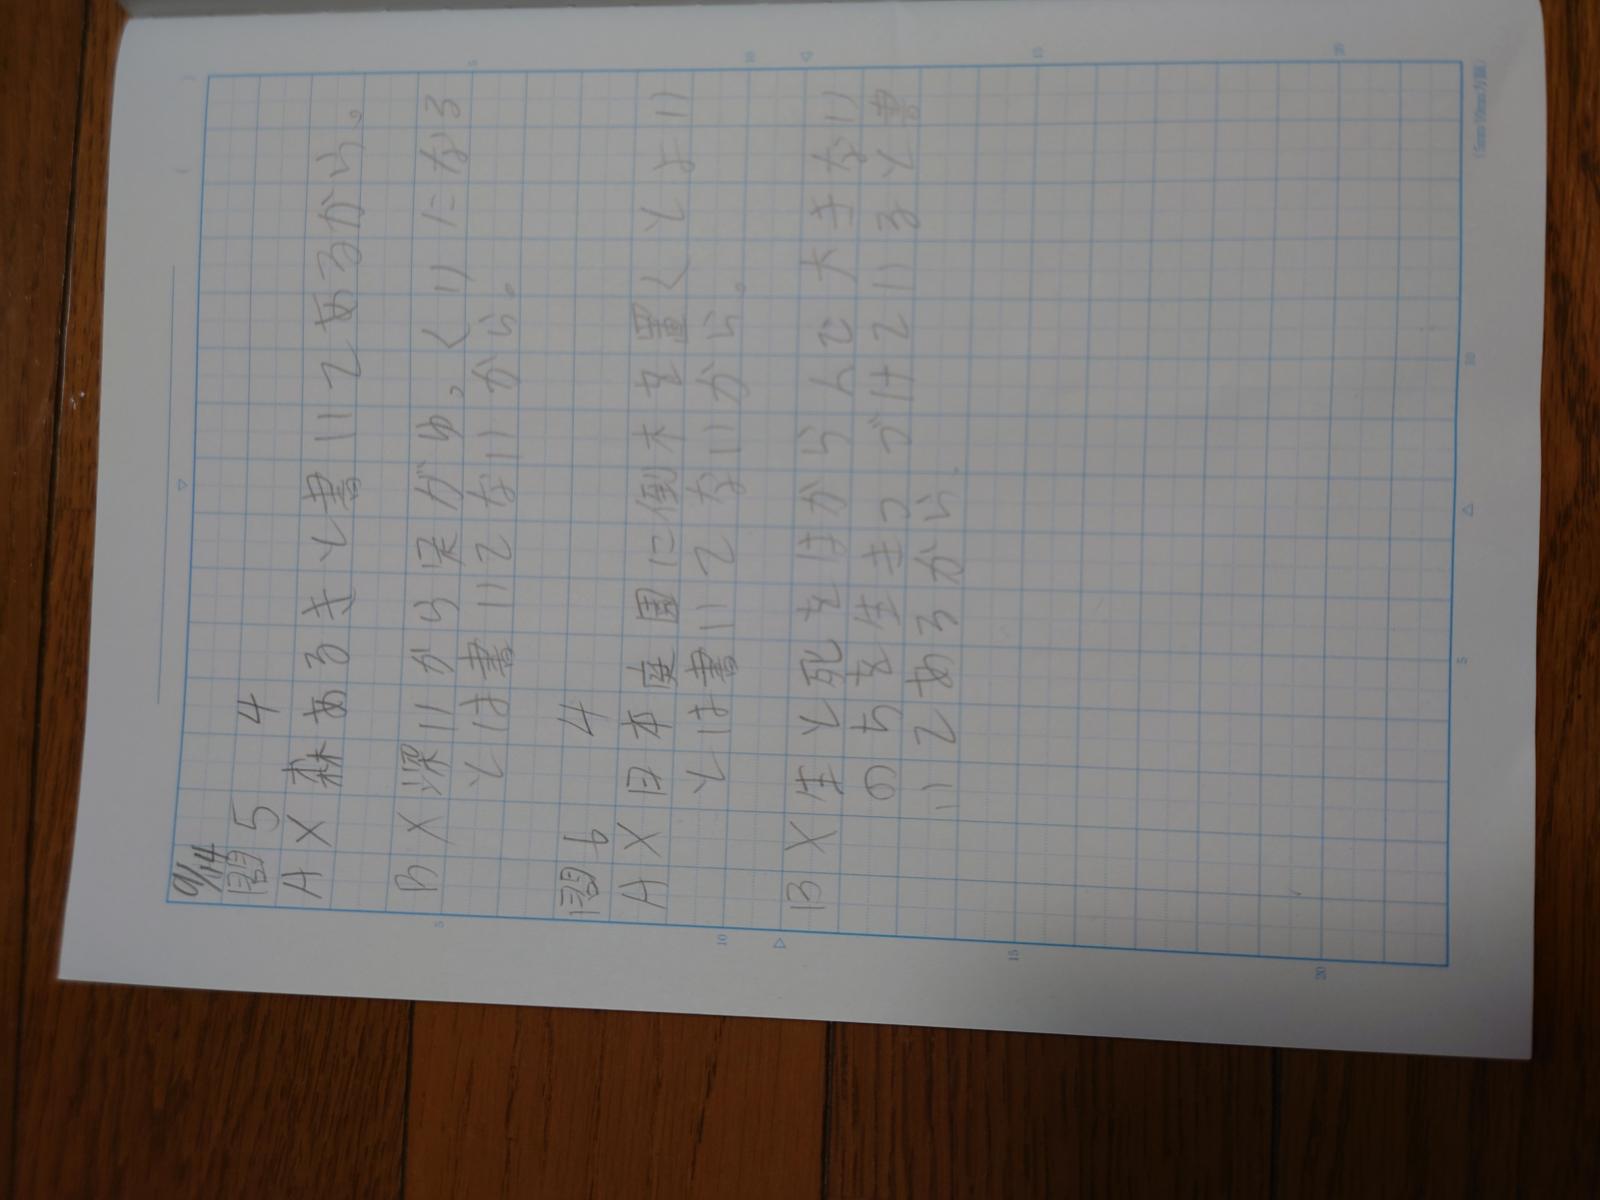 9/14
問5 4
A X 森あるきと書いてあるから。
B X 深いから栄がゆ。くりになる
とは書いてないから。
問6 4
A X 日本庭園に倒木を置くとよい
とは書いてないから。
B X 生と死をはからんで大きない
のちを生きつづけていると書
いてあるから.